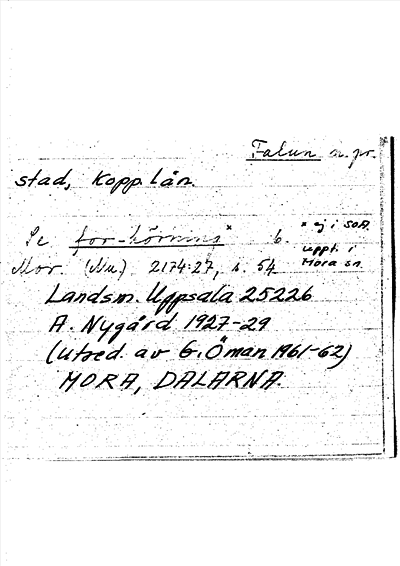 Falun n. pr.
stad, Kopp. län.
Se for-hörning* b. * ej i SOÅ.
uppt. i
Mora sn.
Mor. (Mu) 2174:27, s. 54
Landsm. Uppsala 25226
A. Nygård 1927-29
(utred. av G. Öman 1961-62)
MORA, DALARNA.